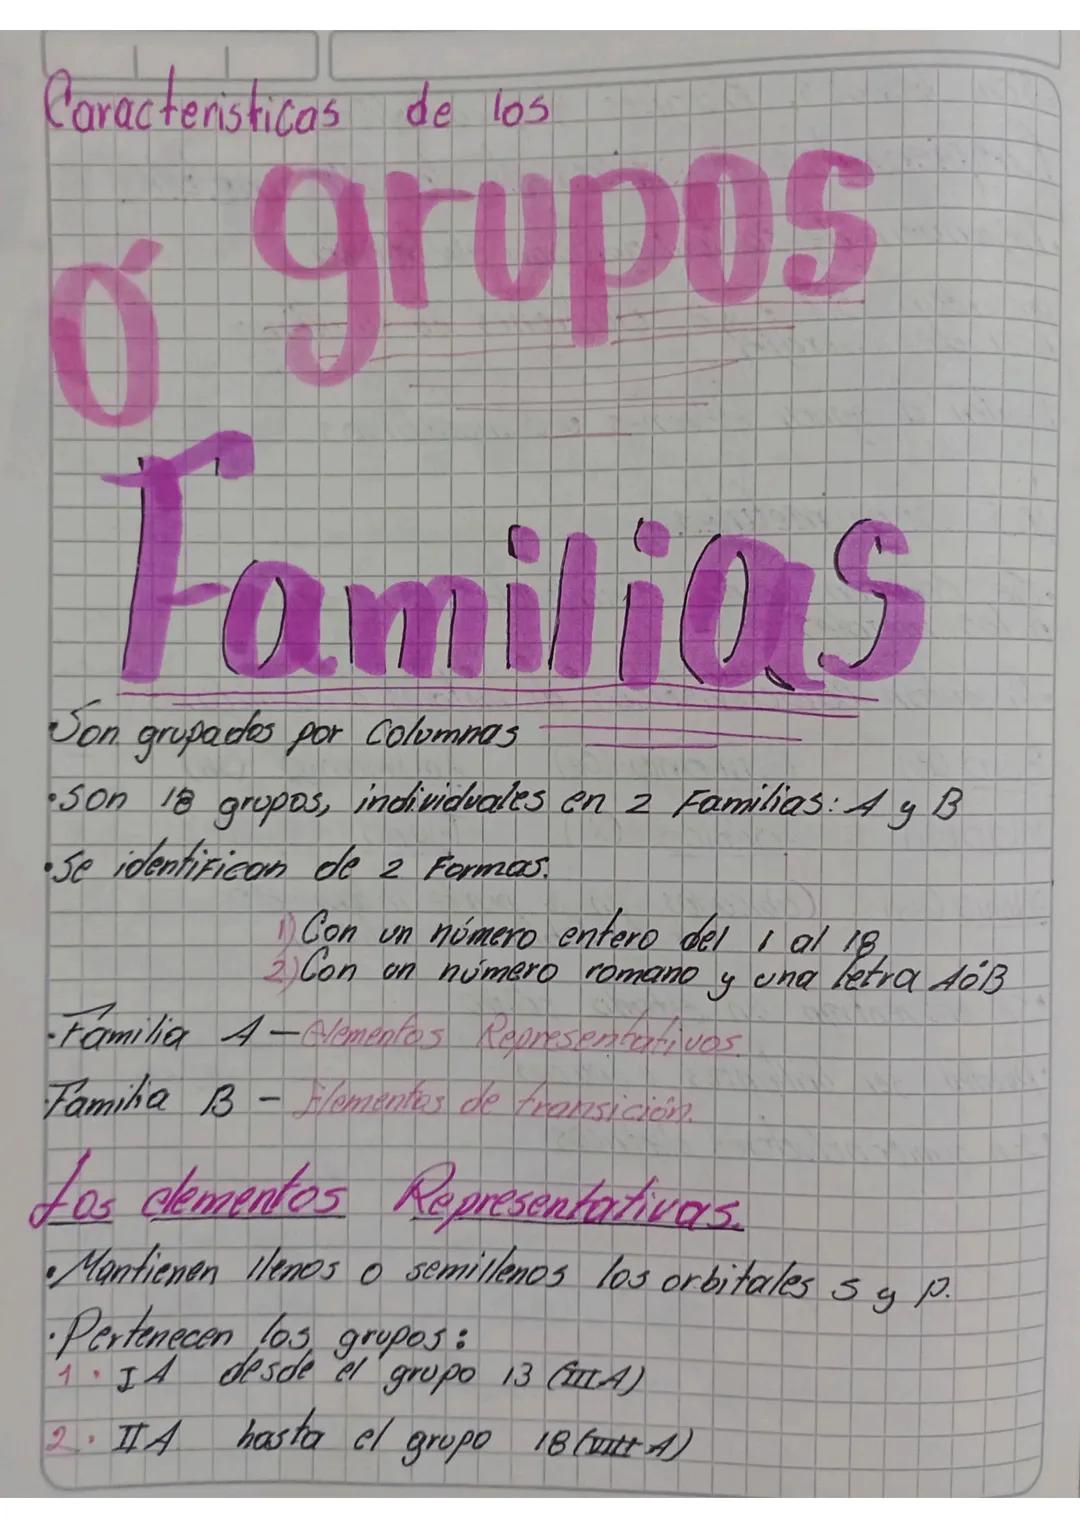 Caracteristicas de los
grupos
ó
Familias
• Son grupados por Columnas
• Son 18 grupos, individuales en 2 Familias: A y B
• Se identifican de 2 Formas.
1) Con un número entero del 1 al 18
2) Con un número romano y una letra A ó B
• Familia A — Elementos Representativos.
Familia B - Elementos de transición.
Los elementos Representativos.
• Mantienen llenos o semillenos los orbitales s y p.
• Pertenecen los grupos:
1. IA desde el grupo 13 (IIIA)
2. IIA hasta el grupo 18 (VIII A)